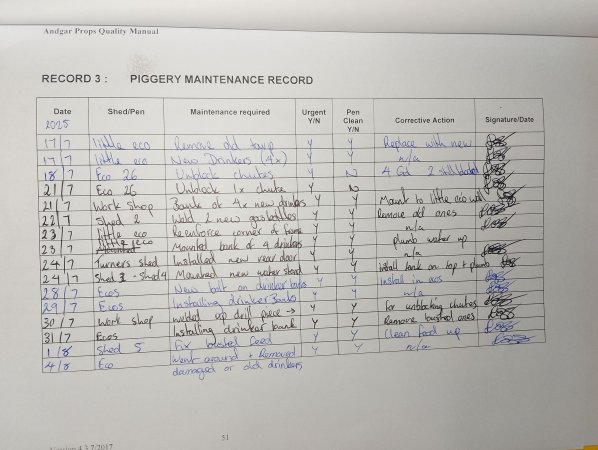 Andgar Props Quality Manual
RECORD 3 : PIGGERY MAINTENANCE RECORD
Date Shed/Pen Maintenance required Urgent Y/N Pen Clean Y/N Corrective Action Signature/Date
2025
17/7 little eco Remove old tarp Y Y Replace with new
17/7 little eco New Drinkers (4x) Y Y n/a
18/7 Eco 26 Unblock chutes Y N 4 Gd 2 still blocked
21/7 Eco 26 Unblock 1x chute Y N
21/7 Work Shop Bank of 4x new drinkers Y Y Mount to little eco wall
22/7 Shed 2 Weld 2 new gas bottles Y Y Remove old ones
23/7 little eco Reenforce corner of frame Y Y n/a
23/7 little eco Mounted bank of 4 drinkers Y Y plumb water up
24/7 Turners shed Installed new rear door Y Y n/a
24/7 Shed - Shed 4 Mounted new water stand Y Y install tank on top + plumb
28/7 Ecos New bolt on drinker banks Y Y Install in ecos
29/7 Ecos Installing drinker Banks Y Y n/a
30/7 Work shop welded up drill piece → Y Y For unblocking chutes
31/7 Ecos Installing drinker bank Y Y Remove busted ones
1/8 Shed 5 Fix busted feed Y Y Clean food up
4/8 Eco Went around + Removed Y Y n/a
damaged or old drinkers
51
Version 4.3.7/2017